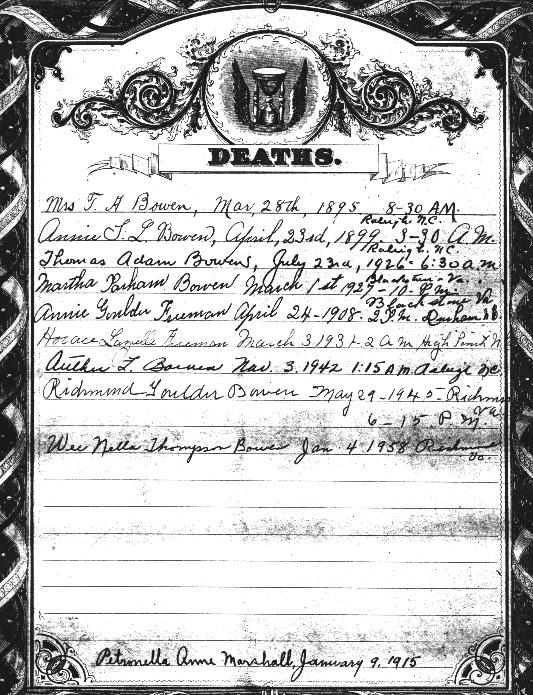 DEATHS.
Mrs T. A Bowen, Mar, 28th, 1895 8-30 AM.
Raleigh. N.C.
Annie S. L. Bowen, April, 23rd, 1899, 3-30 A.M.
Raleigh. N.C.
Thomas Adam Bowen, July 23rd, 1926 6:30 a.m
Blackstone Va.
Martha Parham Bowen March 1st 1929 10 P.M.
Blackstone Va
Annie Goulder Freeman April 24-1908. 2 P.M. Durham
Horace Freeman March 3 1931-2 a m High Point N
Author L. Bowen Nov. 3. 1942 1:15 A.M. NC
Richmond Goulder Bowen May 29-1945-Richmo
6-15 P M. Va.
Wee Nella Thompson Bowen Jan 4 1958 Richmond
Va.
Petronella Anne Marshall, January 9, 1915